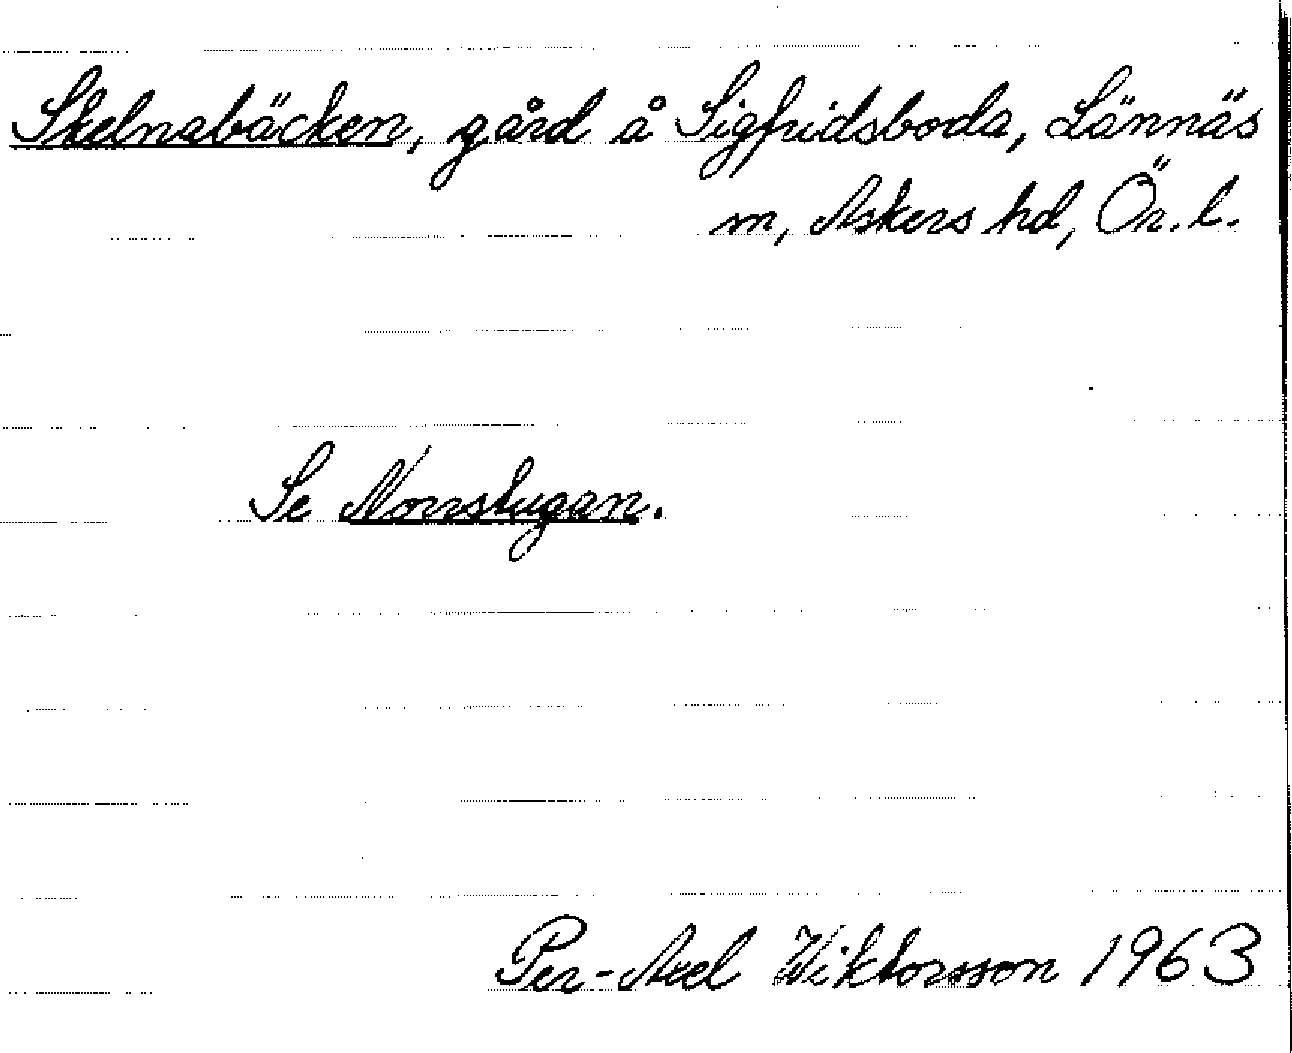 Skelnabäcken, gård å Sigfridsboda, Lännäs
sn, Askers hd, Ör. l.
Se Norrstugan.
Per-Axel Wiktorsson 1963